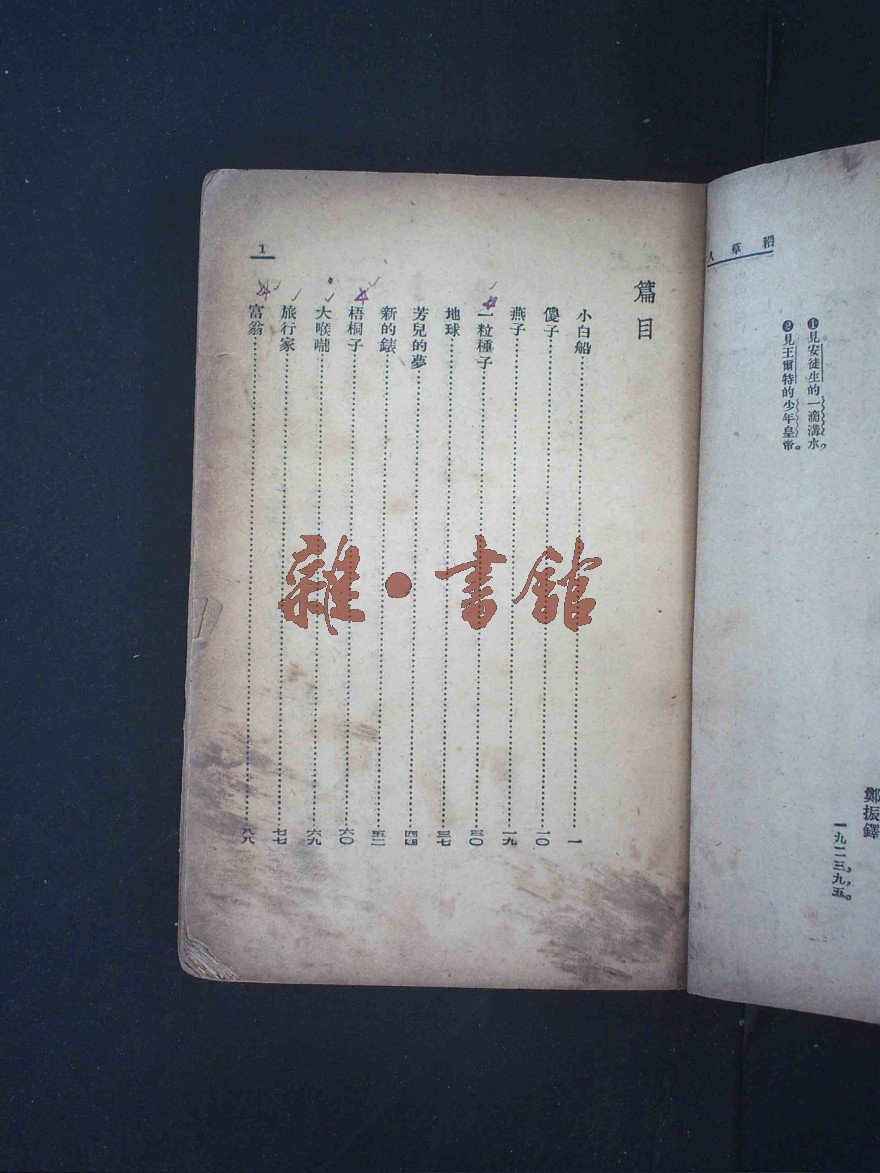 稻草人
❶見安徒生的一滴溝水。
❷見王爾特的少年皇帝。
鄭振鐸
一九二三，九，五。
篇目
小白船……一
傻子……一〇
燕子……一九
一粒種子……三〇
地球……三七
芳兒的夢……四四
新的錶……五二
梧桐子……六〇
大喉嚨……六九
旅行家……七七
富翁……八八
1
雜·書館